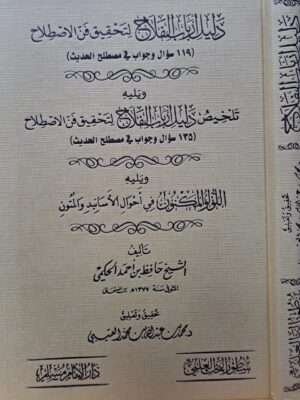 دليل أرباب الفلاح لتحقيق فن الاصطلاح
(١١٩ سؤال وجواب في مصطلح الحديث)
ويليه
تلخيص دليل أرباب الفلاح لتحقيق فن الاصطلاح
(١٣٥ سؤال وجواب في مصطلح الحديث)
ويليه
اللؤلؤ المكنون في أحوال الأسانيد والمتون
تأليف
الشيخ حافظ بن أحمد الحكمي
المتوفى سنة ١٣٧٧هـ
تحقيق وتعليق
دار الإمام مسلم